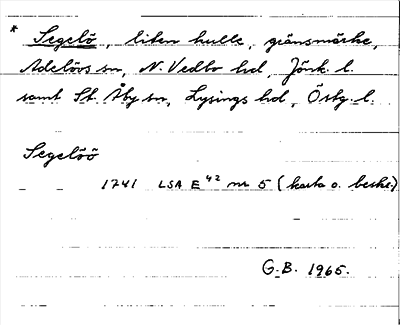 * Segelö, liten kulle, gränsmärke,
Adelövs sn, N. Vedbo hd, Jönk. l.
samt St. Åby sn, Lysings hd, Östg. l.
Segelöö
1741 LSA E⁴² nr 5 (karta o. beskr.)
G.B. 1965.